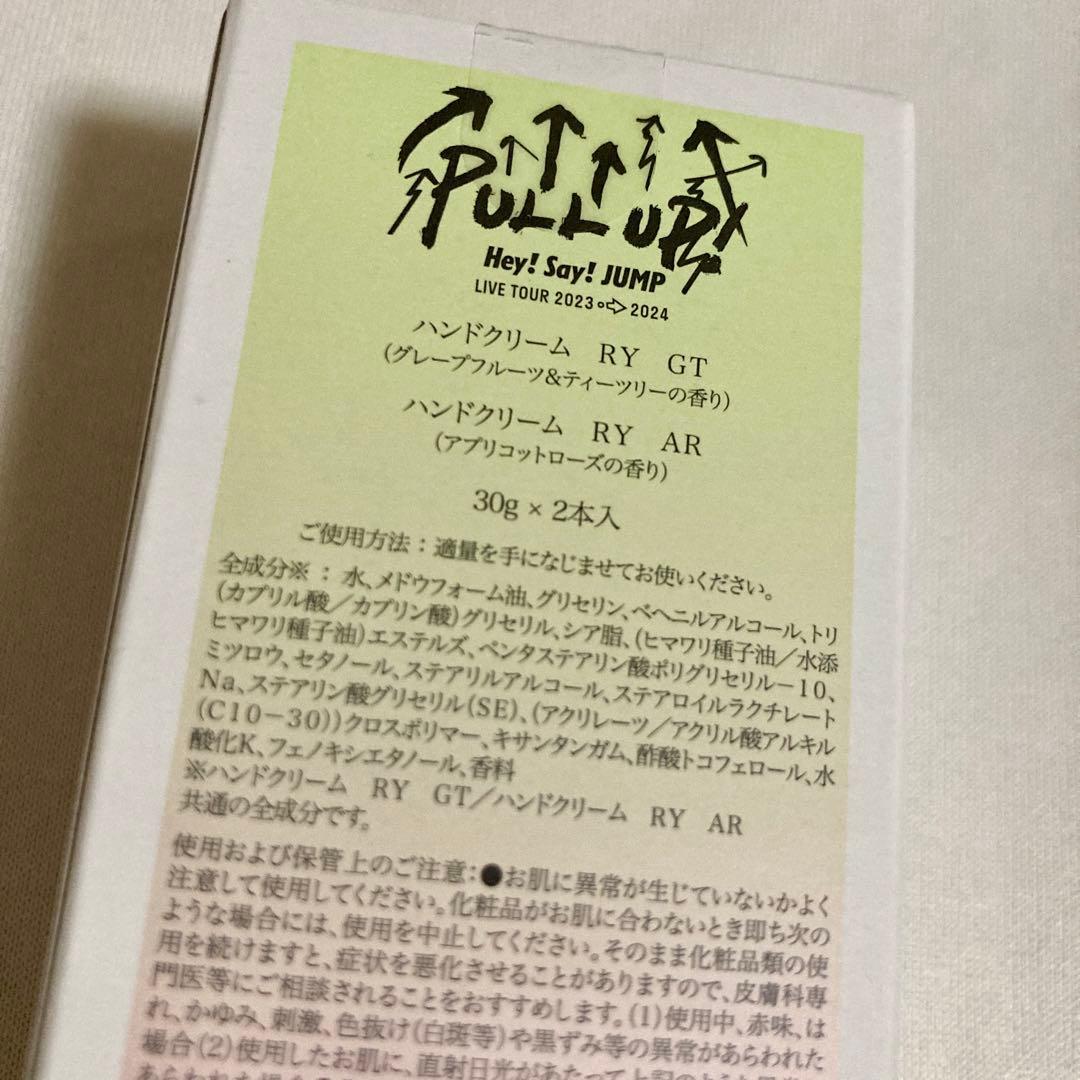 PULL UP!
Hey! Say! JUMP
LIVE TOUR 2023⇨2024
ハンドクリーム RY GT
(グレープフルーツ&ティーツリーの香り)
ハンドクリーム RY AR
(アプリコットローズの香り)
30g × 2本入
ご使用方法：適量を手になじませてお使いください。
全成分※：水、メドウフォーム油、グリセリン、ベヘニルアルコール、トリ
(カプリル酸／カプリン酸)グリセリル、シア脂、(ヒマワリ種子油／水添
ヒマワリ種子油)エステルズ、ペンタステアリン酸ポリグリセリル－10、
ミツロウ、セタノール、ステアリルアルコール、ステアロイルラクチレート
Na、ステアリン酸グリセリル(SE)、(アクリレーツ／アクリル酸アルキル
(C10－30))クロスポリマー、キサンタンガム、酢酸トコフェロール、水
酸化K、フェノキシエタノール、香料
※ハンドクリーム RY GT／ハンドクリーム RY AR
共通の全成分です。
使用および保管上のご注意：●お肌に異常が生じていないかよく
注意して使用してください。化粧品がお肌に合わないとき即ち次の
ような場合には、使用を中止してください。そのまま化粧品類の使
用を続けますと、症状を悪化させることがありますので、皮膚科専
門医等にご相談されることをおすすめします。(1)使用中、赤味、は
れ、かゆみ、刺激、色抜け(白斑等)や黒ずみ等の異常があらわれた
場合(2)使用したお肌に、直射日光があたって上記のような異常が